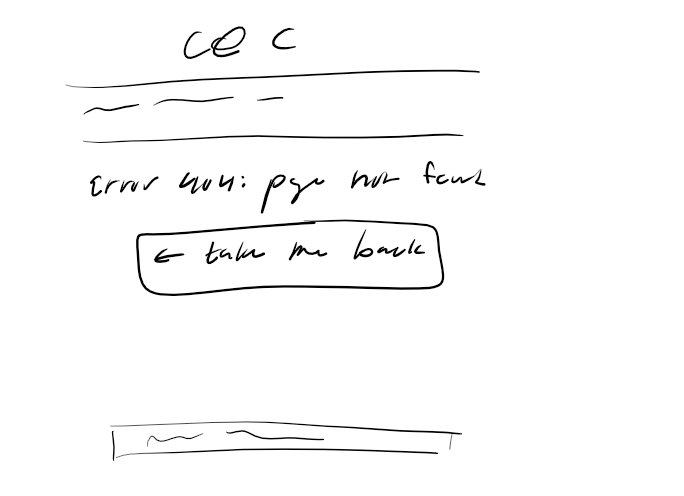 CQC
Error 404: page not found
← take me back